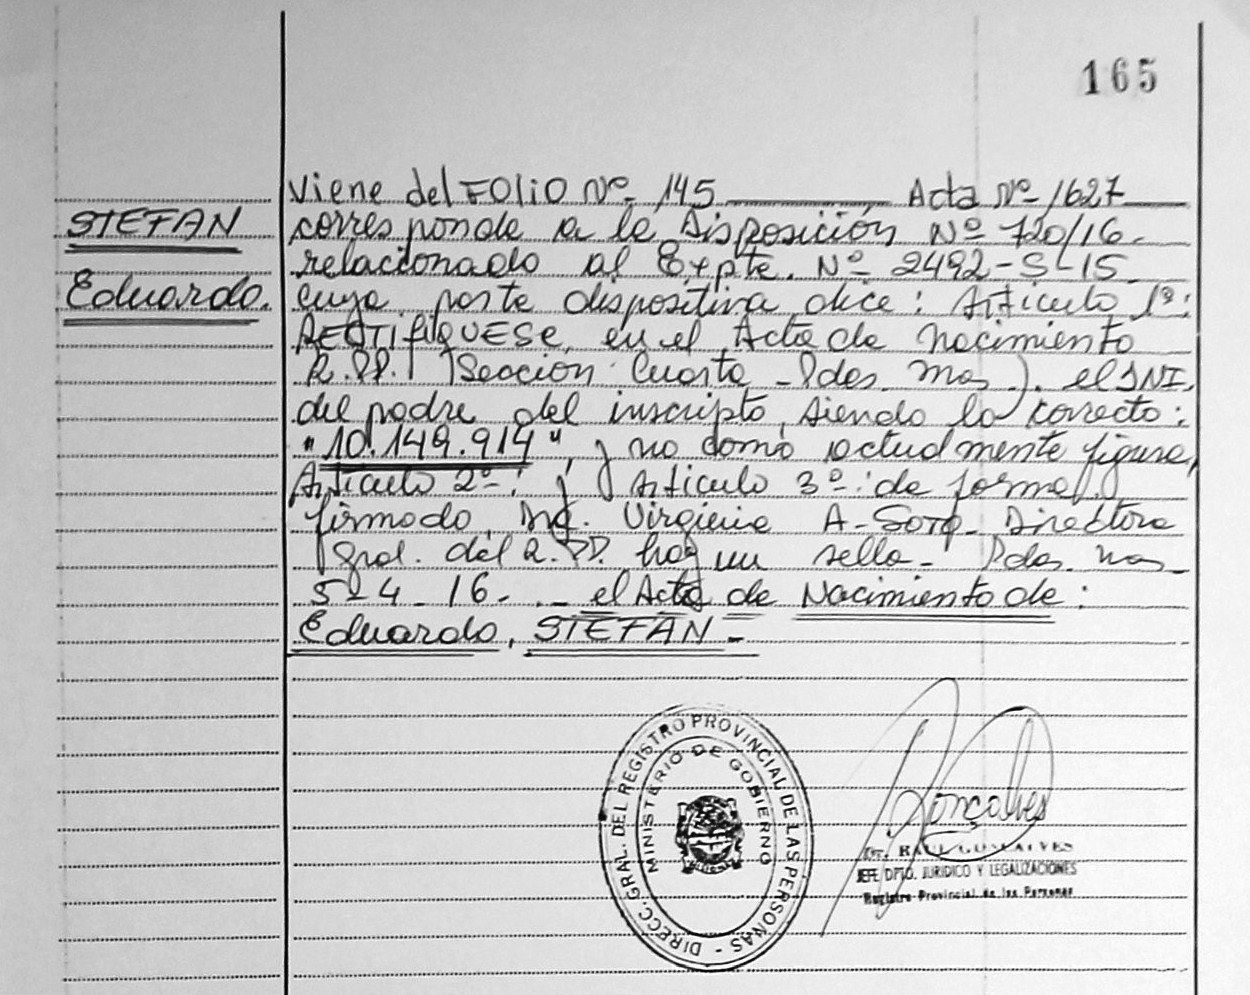 165
Viene del FOLIO Nº 145 Acta Nº 1627
STEFAN
corresponde a la Disposición Nº 720/16.
relacionado al Expte. Nº 2492-S-15
Eduardo.
cuya parte dispositiva dice: Articulo 1º:
RECTIFIQUESE, en el Acta de Nacimiento
R.PP. (Sección Cuarta - Pdas. Mns). el DNI.
del padre del inscripto, siendo lo correcto:
"10.149.914", y no como actualmente figura,
Articulo 2º: y Articulo 3º: de forma.
firmado, Virginia A. Soto - Directora
Gral. del R.PP. hay un sello - Pdas. Mns -
5-4-16. - el Acta de Nacimiento de:
Eduardo, STEFAN -
DIRECC. GRAL. DEL REGISTRO PROVINCIAL DE LAS PERSONAS -
MINISTERIO DE GOBIERNO
Gonçalves
Dr. RAUL GONCALVES
JEFE DPTO. JURIDICO Y LEGALIZACIONES
Registro Provincial de las Personas